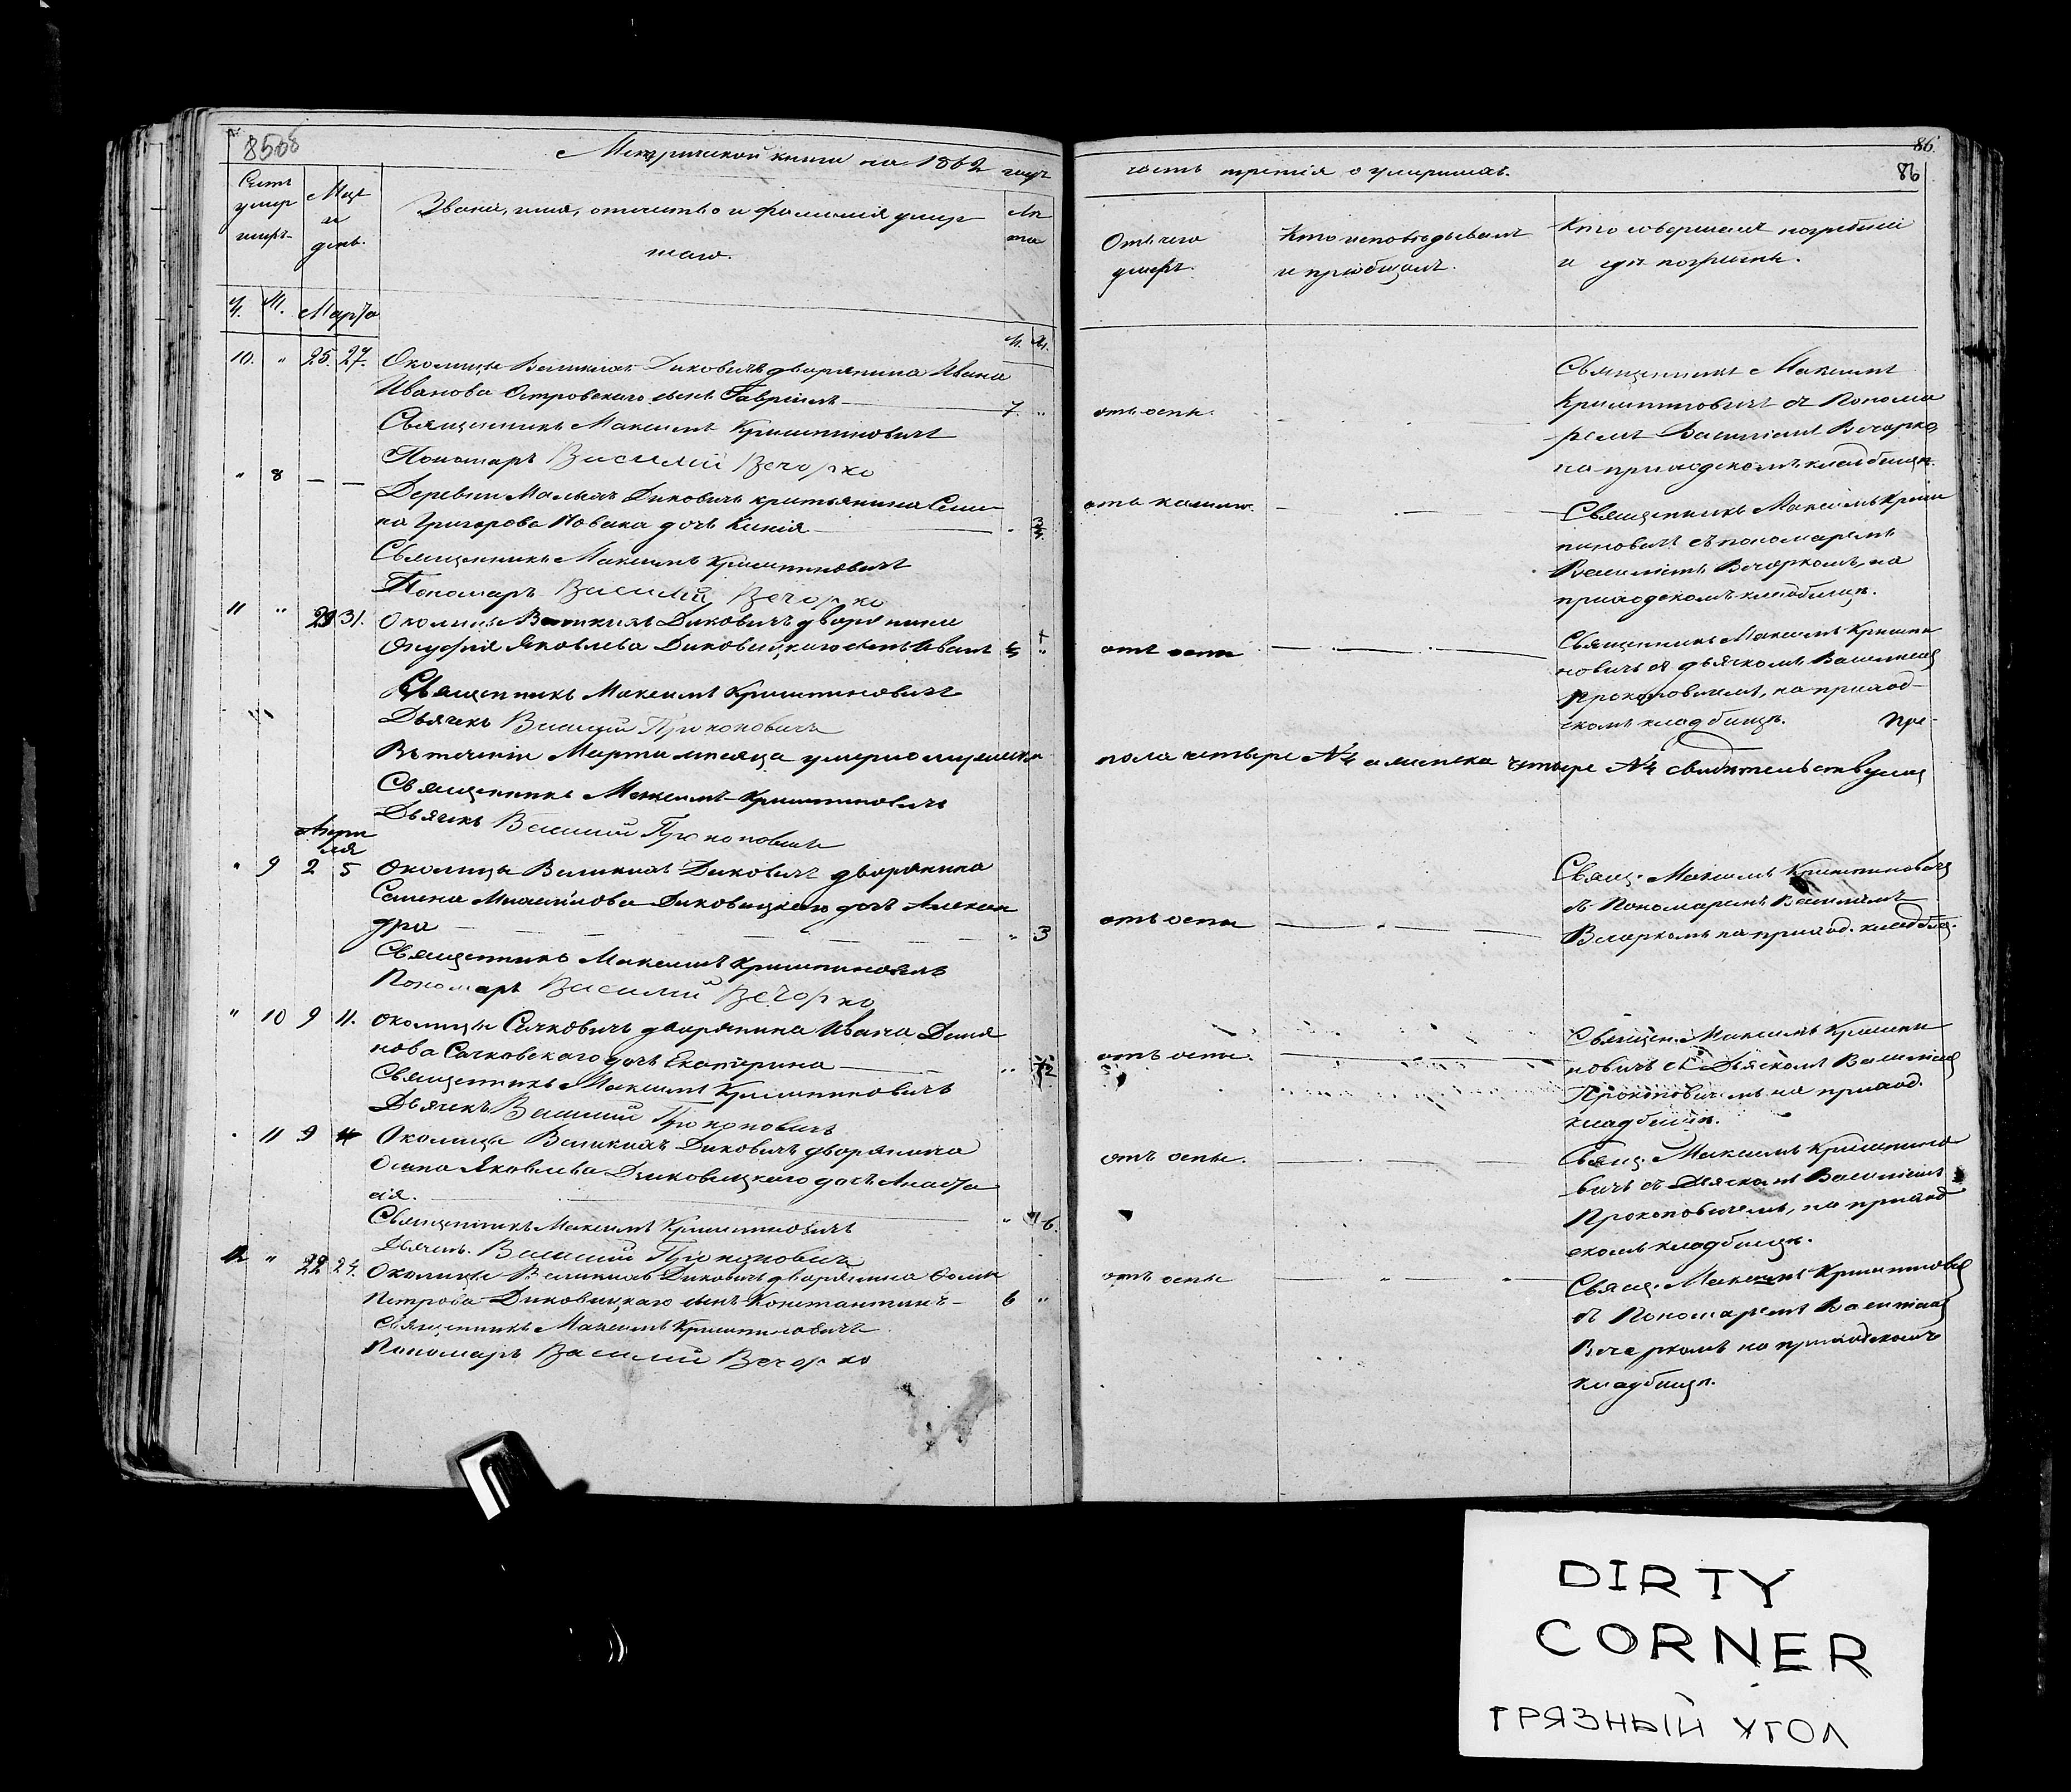 Метрической книги на 1862 годъ
часть третія о умершихъ.
86
86
Счетъ умер шихъ
Мцъ и день.
Званіе, имя, отчество и фамилія умер
шаго.
Лѣ та
Отъ чего
умеръ.
Кто исповѣдывалъ
и пріобщалъ.
Кто совершалъ погребеніе
и гдѣ погребены.
М. Марта
10. " 25. 27. Околицы Великихъ Диковичъ дворянина Ивана
Иванова Островскаго сынъ Гавріилъ 7. "
Священникъ Максимъ Криштиновичъ
Пономарь Василий Вечорко
отъ оспы.
Священникъ Максимъ
Криштиновичъ съ Понома
ремъ Василіемъ Вечорко
на приходскомъ кладбищѣ.
" 8 — — Деревни Малыхъ Диковичъ крестьянина Семе
на Григорова Новака дочь Ксенія
Священникъ Максимъ Криштиновичъ
Пономарь Василий Вечорко
отъ кашлю.
Священникъ Максимъ Кришти
пиновичъ съ пономаремъ
Василіемъ Вечоркомъ, на
приходскомъ кладбищѣ.
11 " 29 31. Околицы Великихъ Диковичъ дворянина
Онуфрія Яковлева Диковицкаго сынъ Иванъ
Священникъ Максимъ Криштиновичъ
Дьячекъ Василий Прокоповичъ
отъ оспы
Священникъ Максимъ Кришти
новичъ съ дьячкомъ Василіемъ
Прокоповичемъ, на приход
скомъ кладбищѣ.
Въ теченіи Марта мѣсяца умерло мужеска
пола четыре №4 а женска четыре №4 свидѣтельствуемъ
Священникъ Максимъ Криштиновичъ
Дьячекъ Василий Прокоповичъ
Апрѣ
ля
" 9 2 5 Околицы Великихъ Диковичъ дворянина
Семена Михайлова Диковицкаго дочь Алексан
дра " 3
Священникъ Максимъ Криштиновичъ
Пономарь Василий Вечорко
отъ оспы
Свящ. Максимъ Криштиновичъ
съ Пономаремъ Василіемъ
Вечоркомъ на приход. кладбищ.
" 10 9 11. Околицы Сачковичъ дворянина Ивана Деми
нова Сачковскаго дочь Екатерина
Священникъ Максимъ Криштиновичъ
Дьячекъ Василий Прокоповичъ
отъ оспы.
Священ. Максимъ Кришти
новичъ съ Дьячкомъ Василіемъ
Прокоповичемъ на приход.
кладбищѣ.
11 9 Околицы Великихъ Диковичъ дворянина
Осипа Яковлева Диковицкаго дочь Анаста
сія.
Священникъ Максимъ Криштиновичъ
Дьячекъ. Василий Прокоповичъ
отъ оспы.
Свящ. Максимъ Криштино
вичъ съ Дьячкомъ Василіемъ
Прокоповичемъ, на приход
скомъ кладбищѣ.
12 " 22 24. Околицы Великихъ Диковичъ дворянина Фомы
Петрова Диковицкаго сынъ Константинъ 6 "
Священникъ Максимъ Криштиновичъ
Пономарь Василий Вечорко
отъ оспы
Свящ. Максимъ Криштиновичъ
съ Пономаремъ Василіемъ
Вечеркомъ на приходскомъ
кладбищѣ.
DIRTY
CORNER
ГРЯЗНЫЙ УГОЛ